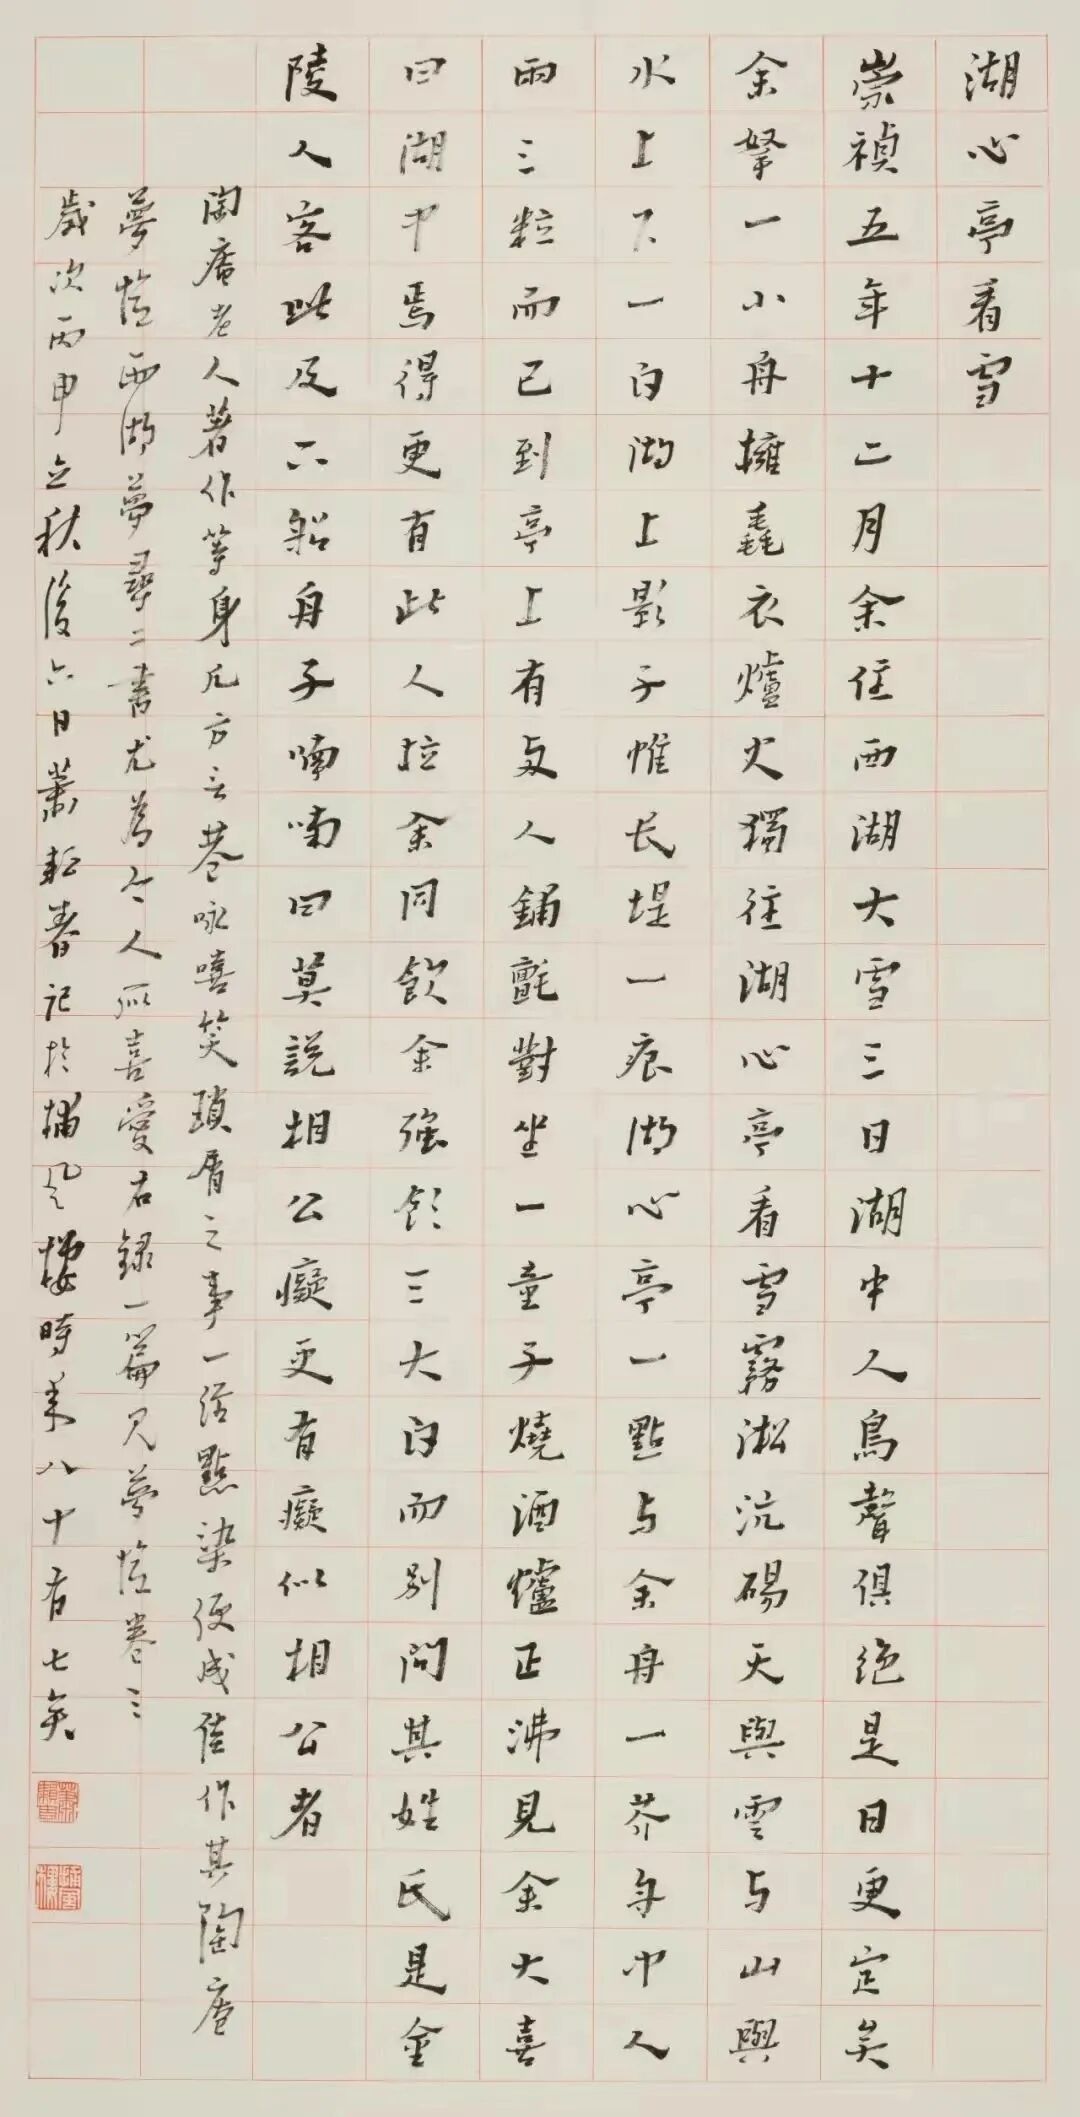 湖心亭看雪
崇禎五年十二月余住西湖大雪三日湖中人鳥聲俱絕是日更定矣
余拏一小舟擁毳衣爐火獨往湖心亭看雪霧淞沆碭天與雲与山與
水上下一白湖上影子惟长堤一痕湖心亭一點与余舟一芥舟中人
兩三粒而已到亭上有两人鋪氈對坐一童子燒酒爐正沸見余大喜
曰湖中焉得更有此人拉余同飲余強飲三大白而别問其姓氏是金
陵人客此及下船舟子喃喃曰莫說相公癡更有癡似相公者
陶庵老人著作等身凡方言巷咏嘻笑瑣屑之事一經點染便成佳作其陶庵
夢憶西湖夢尋二書尤為今人所喜愛右録一篇見夢憶卷三
歲次丙申立秋後六日蕭耘春記於播風樓時年八十有七矣